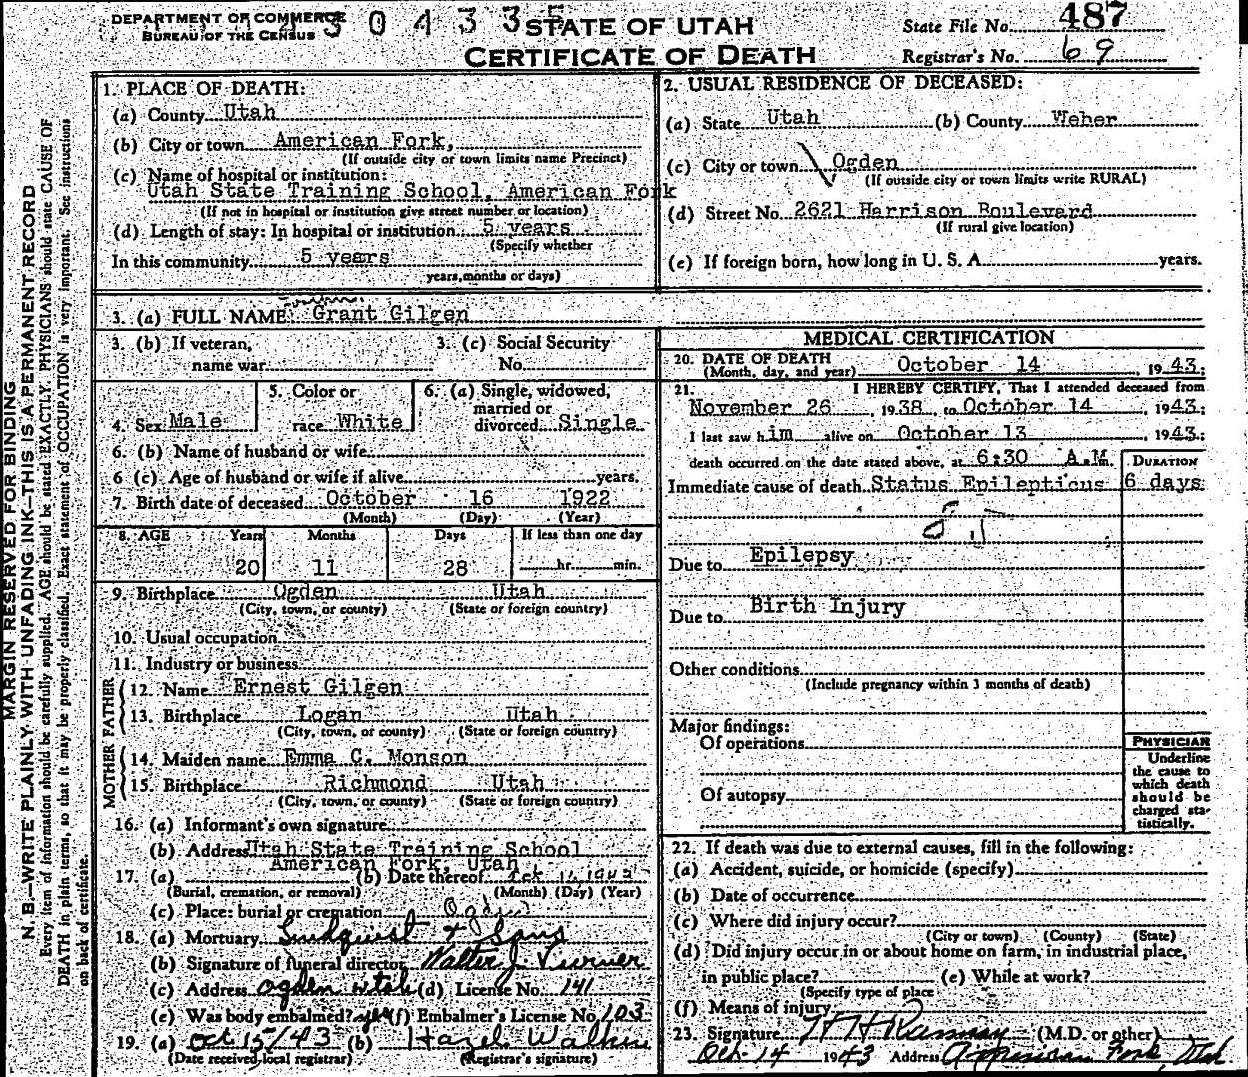 DEPARTMENT OF COMMERCE
BUREAU OF THE CENSUS
3 0 4 3 3 5
STATE OF UTAH
CERTIFICATE OF DEATH
State File No. 487
Registrar's No. 69
MARGIN RESERVED FOR BINDING
N. B.—WRITE PLAINLY WITH UNFADING INK—THIS IS A PERMANENT RECORD
Every item of information should be carefully supplied. AGE should be stated EXACTLY. PHYSICIANS should state CAUSE OF
DEATH in plain terms, so that it may be properly classified. Exact statement of OCCUPATION is very important. See instructions
on back of certificate.
1. PLACE OF DEATH:
(a) County Utah
(b) City or town American Fork,
(If outside city or town limits name Precinct)
(c) Name of hospital or institution:
Utah State Training School, American Fork
(If not in hospital or institution give street number or location)
(d) Length of stay: In hospital or institution 5 years
(Specify whether
In this community 5 years
years, months or days)
2. USUAL RESIDENCE OF DECEASED:
(a) State Utah (b) County Weber
(c) City or town Ogden
(If outside city or town limits write RURAL)
(d) Street No. 2621 Harrison Boulevard
(If rural give location)
(e) If foreign born, how long in U. S. A. years.
3. (a) FULL NAME Grant Gilgen
3. (b) If veteran,
name war
3. (c) Social Security
No.
4. Sex Male
5. Color or
race White
6. (a) Single, widowed,
married or
divorced Single
6. (b) Name of husband or wife
6 (c) Age of husband or wife if alive years.
7. Birth date of deceased October 16 1922
(Month) (Day) (Year)
8. AGE Years Months Days If less than one day
20 11 28 hr. min.
9. Birthplace Ogden Utah
(City, town, or county) (State or foreign country)
10. Usual occupation
11. Industry or business
FATHER
12. Name Ernest Gilgen
13. Birthplace Logan Utah
(City, town, or county) (State or foreign country)
MOTHER
14. Maiden name Emma C. Monson
15. Birthplace Richmond Utah
(City, town, or county) (State or foreign country)
16. (a) Informant's own signature
(b) Address Utah State Training School
American Fork, Utah
17. (a) (b) Date thereof Oct 16 1943
(Burial, cremation, or removal) (Month) (Day) (Year)
(c) Place: burial or cremation Ogden
18. (a) Mortuary Lindquist & Sons
(b) Signature of funeral director Walter J.
(c) Address Ogden Utah (d) License No. 141
(e) Was body embalmed? yes (f) Embalmer's License No. 103
19. (a) Oct 15/43 (b) Hazel
(Date received local registrar) (Registrar's signature)
MEDICAL CERTIFICATION
20. DATE OF DEATH
(Month, day, and year) October 14, 1943.
21. I HEREBY CERTIFY, That I attended deceased from
November 26, 1938, to October 14, 1943;
I last saw him alive on October 13, 1943;
death occurred on the date stated above, at 6:30 A.M.
DURATION
Immediate cause of death Status Epilepticus 6 days
Due to Epilepsy
Due to Birth Injury
Other conditions
(Include pregnancy within 3 months of death)
Major findings:
Of operations
Of autopsy
PHYSICIAN
Underline
the cause to
which death
should be
charged sta-
tistically.
22. If death was due to external causes, fill in the following:
(a) Accident, suicide, or homicide (specify)
(b) Date of occurrence
(c) Where did injury occur?
(City or town) (County) (State)
(d) Did injury occur in or about home on farm, in industrial place,
in public place? (e) While at work?
(Specify type of place
(f) Means of injury
23. Signature (M.D. or other)
Oct-14 1943 Address American Fork, Utah